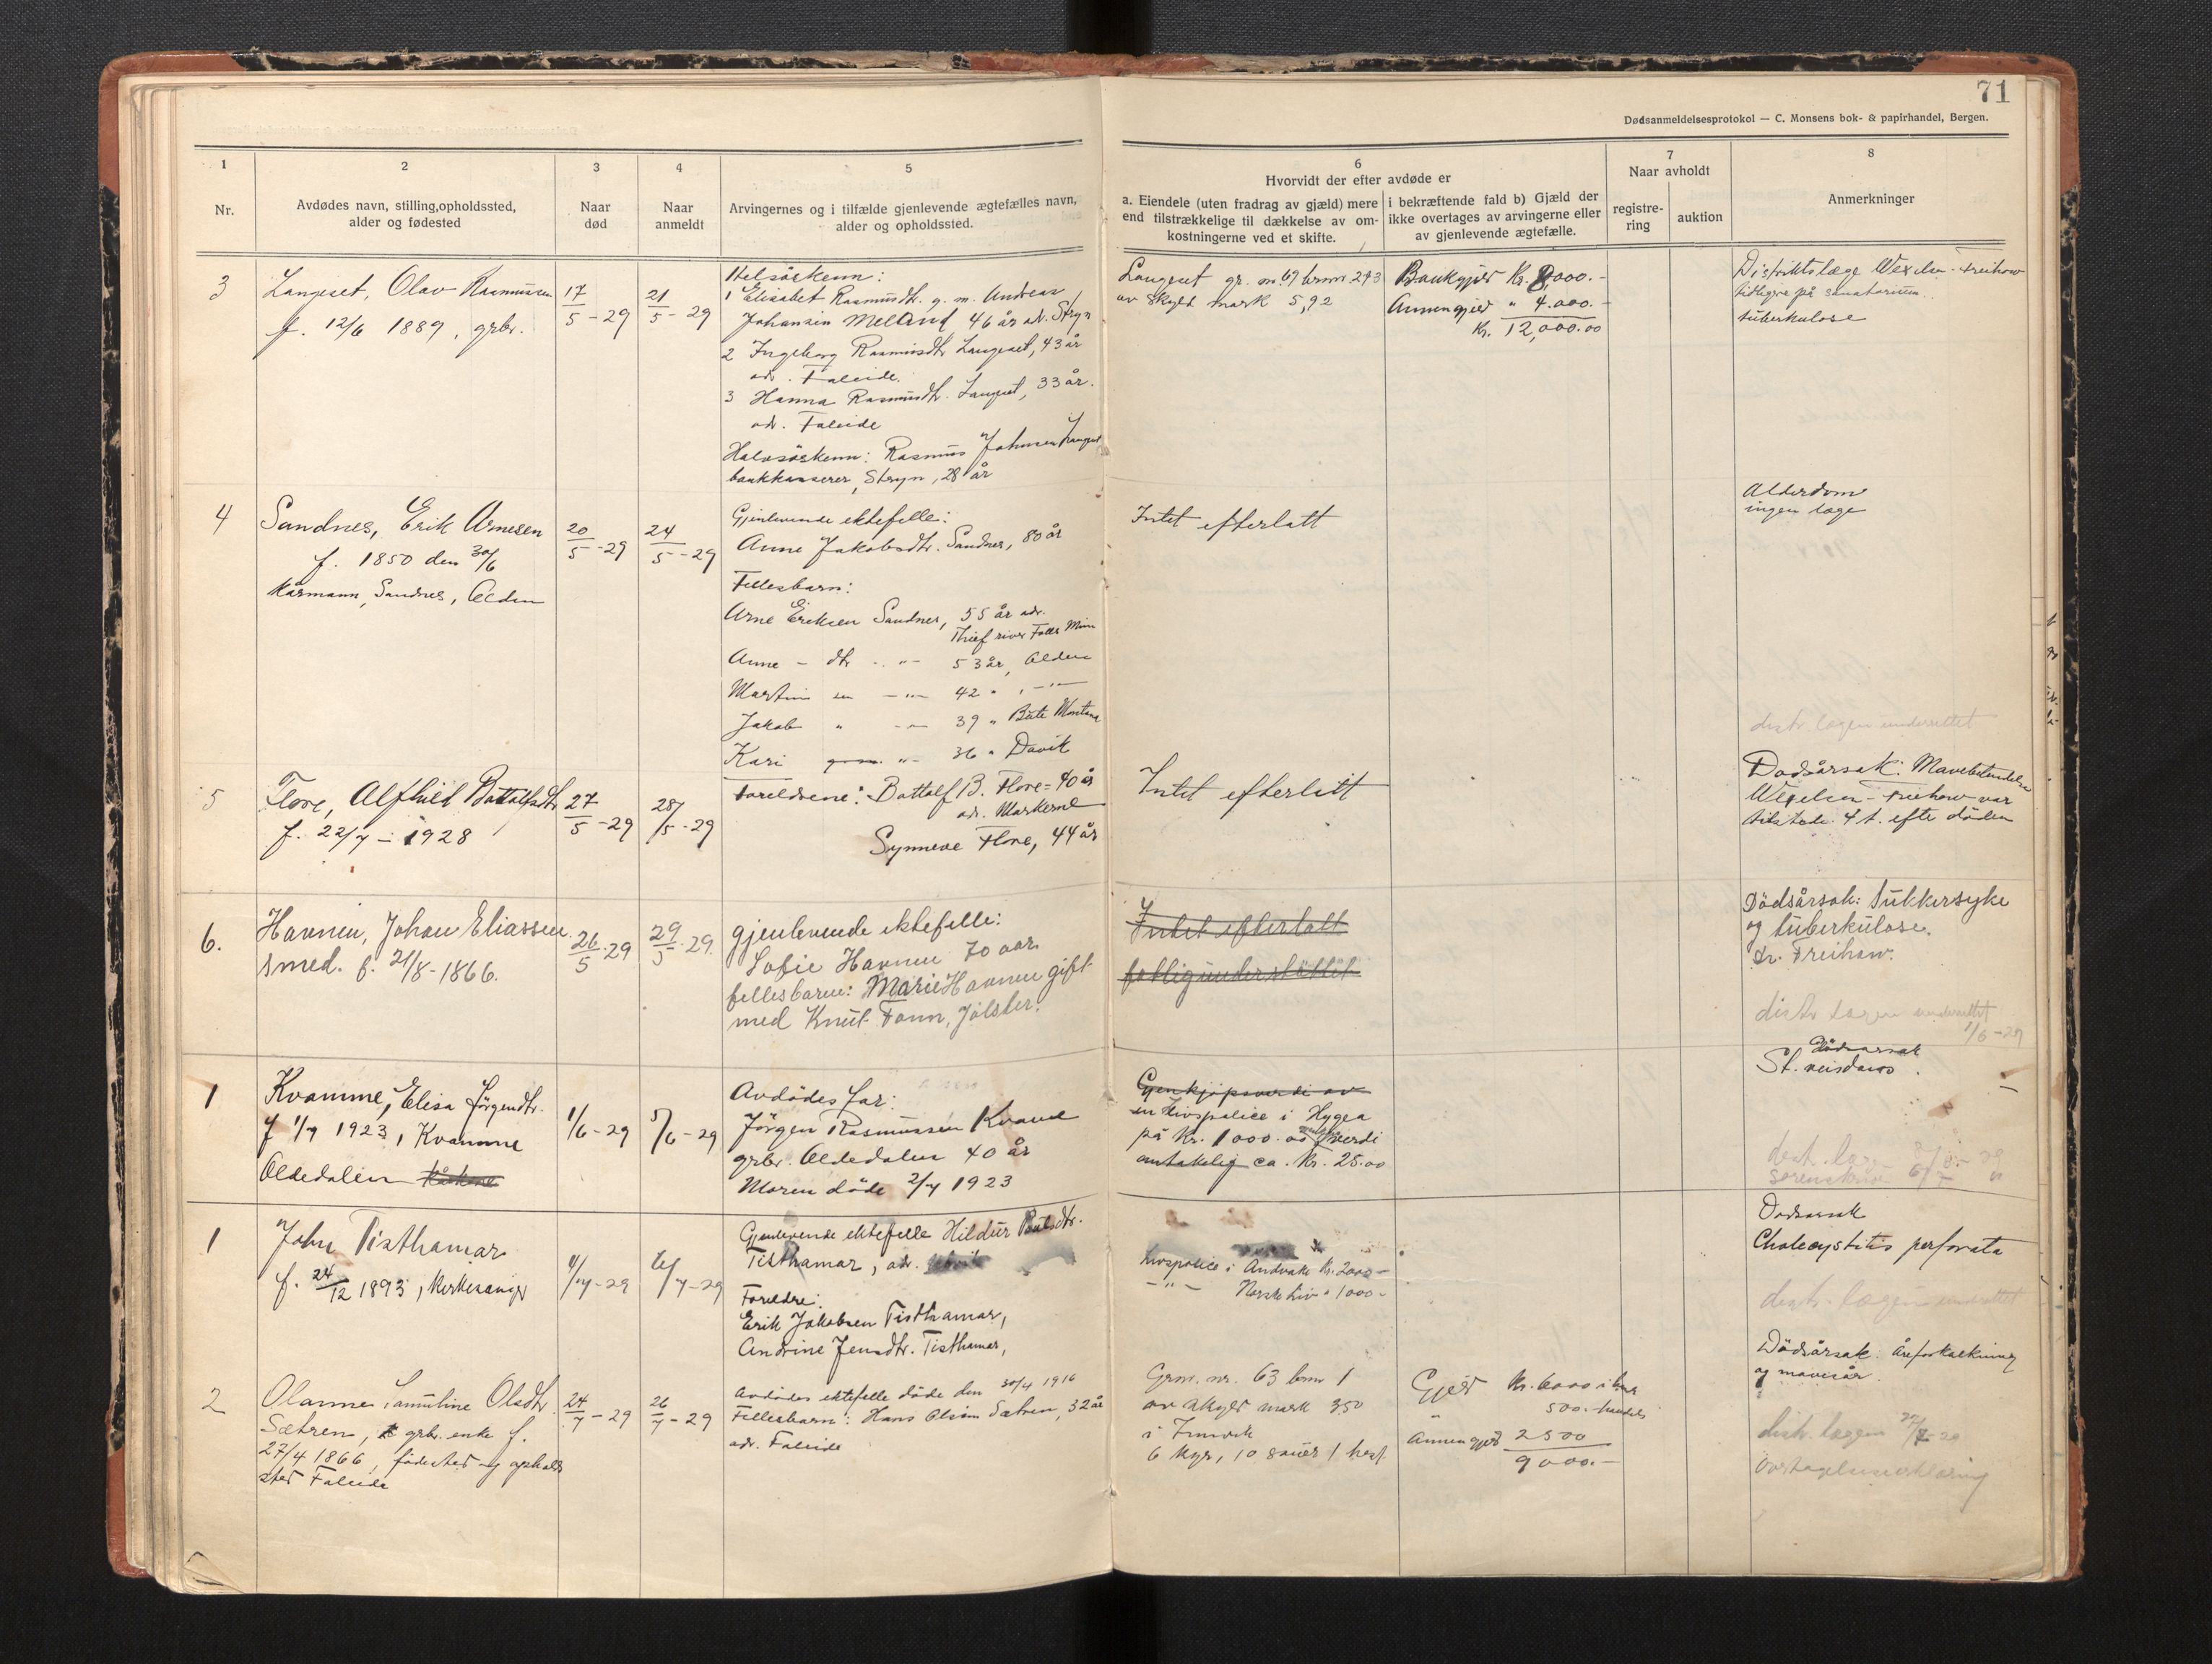 71
Dødsanmeldelsesprotokol — C. Monsens bok- & papirhandel, Bergen.
1
2
3
4
5
6
7
8
Nr.
Avdødes navn, stilling, opholdssted,
alder og fødested
Naar
død
Naar
anmeldt
Arvingernes og i tilfælde gjenlevende ægtefælles navn,
alder og opholdssted.
Hvorvidt der efter avdøde er
a. Eiendele (uten fradrag av gjæld) mere
end tilstrækkelige til dækkelse av om-
kostningerne ved et skifte.
i bekræftende fald b) Gjæld der
ikke overtages av arvingerne eller
av gjenlevende ægtefælle.
Naar avholdt
registre-
ring
auktion
Anmerkninger
3
Langeset, Olav Rasmussen
f. 12/6 1889, grbr.
17/5 - 29
21/5 - 29
Helsøskenn:
1 Elisabet Rasmusdtr. g. m. Andreas
Johansen Meland 46 år ad. Stryn
2 Ingeborg Rasmusdtr. Langeset, 43 år
adr. Faleide.
3 Hanna Rasmusdtr. Langeset, 33 år.
adr. Faleide
Halvsøskenn: Rasmus Johnsen Langeset
bankkasserer, Stryn, 28 år
Langeset gr. nr. 69 brnr. 293
av skyld mark 5,92
Bankgjeld Kr. 8,000.-
Annen gjeld " 4.000.-
Kr. 12,000.00
Distriktslæge Wexelsen-Freihow
tidligere på sanatorium
tuberkulose
4
Sandnes, Erik Arnesen
f. 1850 den 30/6
Kårmann, Sandnes, Olden
20/5 - 29
24/5 - 29
Gjenlevende ektefelle:
Anne Jakobsdtr. Sandnes, 80 år
Fellesbarn:
Arne Eriksen Sandnes, 55 år adr.
Thief river Falls Minn
Anne - dtr - " - 53 år, Olden
Martin sen - " - 42 " , - " -
Jakob " - " - 39 " Bute Montana
Kari - " - 36 " Davik
Intet efterlatt
Alderdom
ingen læge
distr. lægen underrettet
5
Flore, Alfhild Bottolfsdtr
f. 22/7 - 1928
27/5 - 29
28/5 - 29
Foreldrene: Bottolf B. Flore = 40 år
adr. Markerne
Synneve Flore, 44 år
Intet efterlatt
Dødsårsak: Mavebetendelse
Wexelsen-Freihow var
tilstede 4 t. efter døden
6.
Havnen, Johan Eliassen
smed. f. 21/8-1866.
26/5 - 29
29/5 - 29.
gjenlevende ektefelle:
Sofie Havnen 70 aar
fellesbarn: Marie Havnen gift
med Knut Fonn, Jølster.
Intet efterlatt
fattigunderstøttet
Dødsårsak: Sukkersyke
og tuberkulose.
dr. Freihow.
distr lægen underrettet
1/6-29
1
Kvamme, Elisa Jørgendtr.
f 1/7 1923, Kvamme
Oldedalen
1/6 - 29
5/6 - 29
Avdødes far:
Jørgen Rasmussen Kvame
grbr. Oldedalen 40 år
Moren døde 2/7 1923
Gjenkjøpsverdi av
en livspolice i Hygea
på Kr. 1000.00 verdi
antakelig ca. Kr. 25.00
Dødsarsak
St. veisdans.
distr. læg
Sorenskriv
1
John Tisthamar
f. 24/12 1893, kirkesanger
1/7 - 29
6/7 - 29
Gjenlevende ektefelle Hildur Paulsdtr.
Tisthamar, adr.
Foreldre:
Erik Jakobsen Tisthamar,
Andrine Jensdtr. Tisthamar,
Livspolice i Andvake Kr. 2000-
- " - Norske Liv " 1000-
Dødsarsak
Cholecystitis perforata
distr. lægen underrettet
2
Olanne Samuline Olsdtr.
Sætren, grbr. enke f.
27/4 1866, fødested og opholds
sted Faleide
24/7 - 29
26/7 - 29
Avdødes ektefelle døde den 30/4 1916
Fellesbarn: Hans Olsen Sætren, 32 år
adr. Faleide
Grnr. nr. 63 brnr 1
av skyld mark 350
i Innvik
6 kyr, 10 sauer 1 hest
Gjeld Kr. 6000 i bank
" 500.- handels
Annen gjeld 2500
9000.-
Dødsårsak: Åreforkalkning
og mavesår.
distr. lægen
Overtagelseserklæring